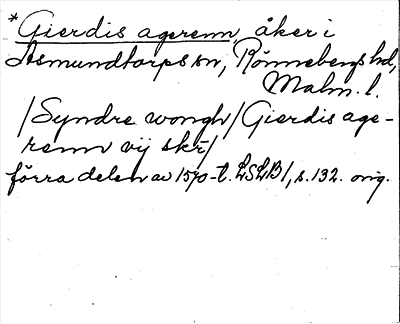 *Gierdis agerenn, åker i
Asmundtorps sn, Rönnebergs hd,
Malm. l.
/Syndre wongh/Gierdis age-
renn vij skr/
förra delen av 1570-t. LSLB1, s. 132. orig.